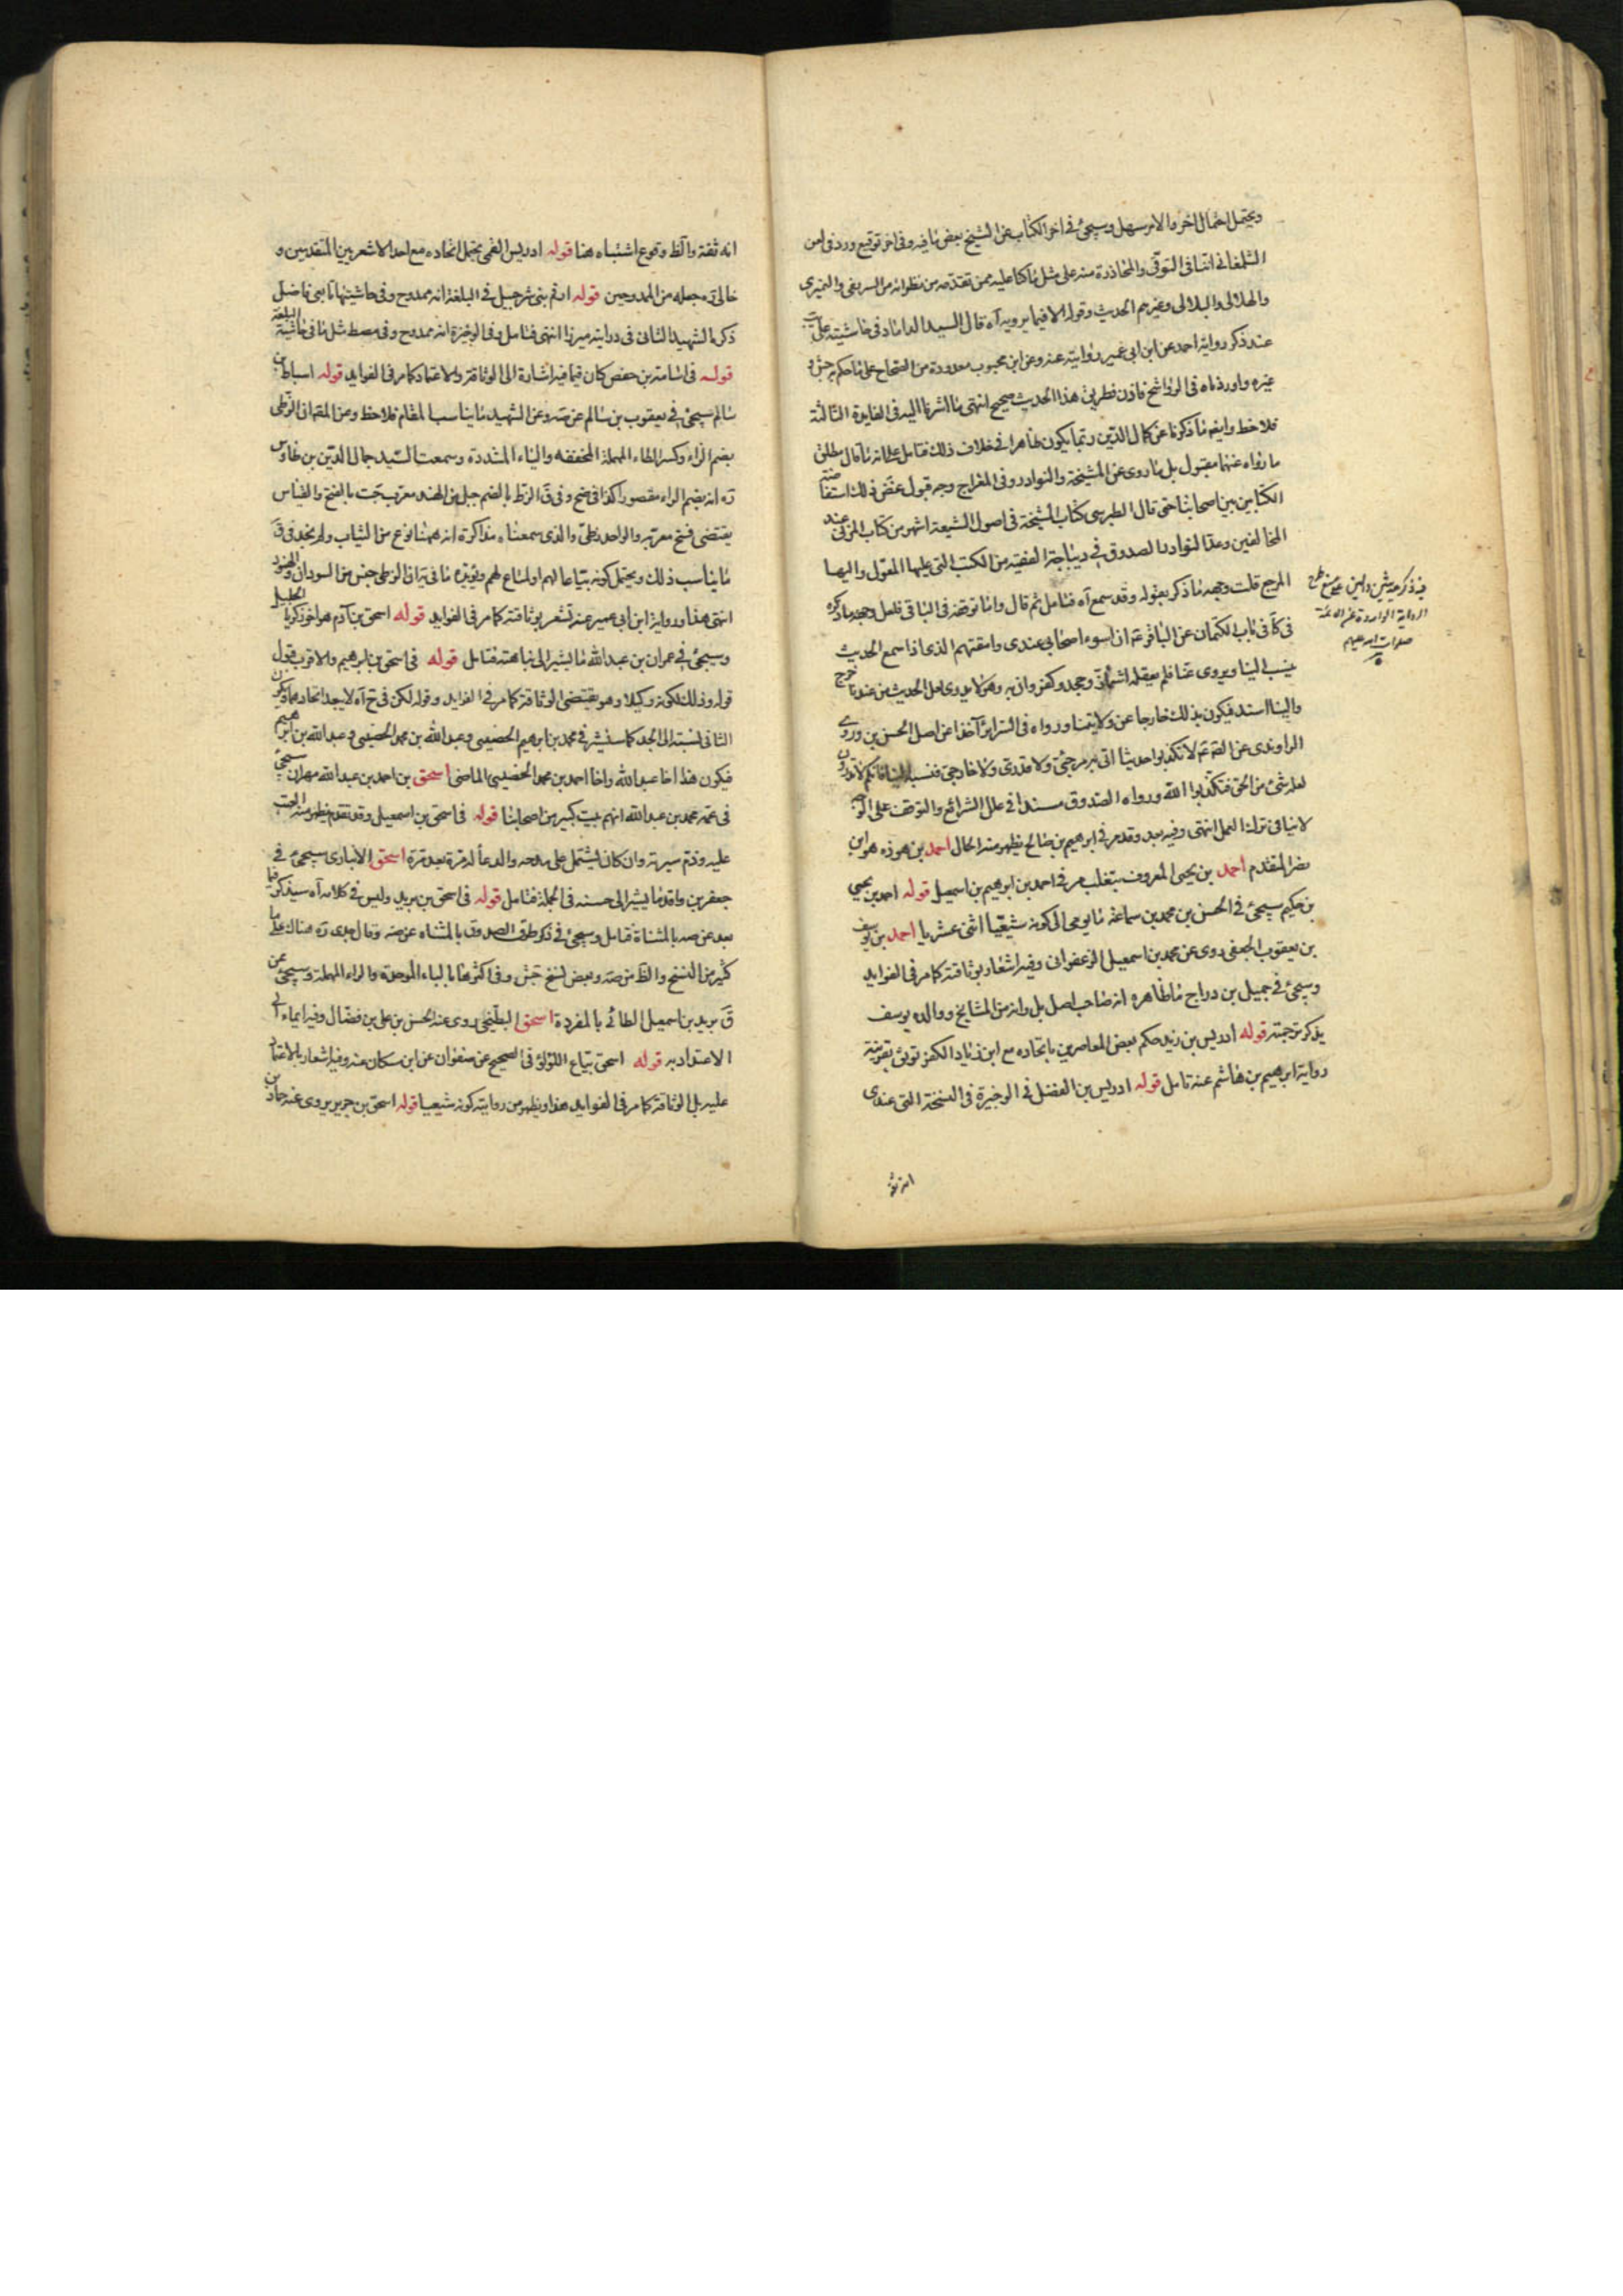 ويحتمل احتمال اخر والامر سهل وسيجئ في اخر الكتاب عن الشيخ بعض ما فيه وفي اخر توقيع ورد في لعن
الشلمغاني اننا في التوقي والمحاذرة منه على مثل ما كنا عليه ممن تقدمه من نظرائه من السريعي والنميري
والهلالي والبلالي وغيرهم الحديث وقوله الا فيما يرويه آه قال السيد الداماد في حاشيته على
عند ذكر رواية احمد عن ابن ابي عمير روايته عنه وعن ابن محبوب معدودة من الصحاح على ما حكم به جش و
غيره واوردناه في الرواشح فاذن طريق هذا الحديث صحيح انتهى ما اشرنا اليه في الفايدة الثالثة
فلاحظ وايضم ما ذكرنا عن كمال الدين ربما يكون ظاهرا في خلاف ذلك فتامل على انه ما قال مطلق
ما رواه عنهما مقبول بل ما روى عن المشيخة والنوادر وفي المعراج وجه قبول غض ذلك استفاضة
الكتابين بين اصحابنا حتى قال الطبرسي كتاب المشيخة في اصول الشيعة اشهر من كتاب المزني عند
المخالفين وعد النوادر الصدوق في ديباجة الفقيه من الكتب التي عليها المعول واليها
المرجع قلت وجهه ما ذكر بقوله وقد سمع آه فتامل ثم قال واما توقفه في الباقي فلعل وجهه ما ذكره
في كا في باب الكتمان عن الباقر ع ان اسوء اصحابي عندي وامقتهم الذي اذا سمع الحديث
ينسب الينا ويروى عنا فلم يعقله اشمأز وجحد وكفر من دان به وهو لا يدري لعل الحديث من عندنا خرج
والينا اسند فيكون بذلك خارجا عن ولايتنا ورواه في السراير آخذا عن اصل الحسن بن وروى
الراوندي عن الصم ع لا تكذبوا حديثا اتى به مرجئ ولا قدري ولا خارجي فنسبه الينا فانكم لا تدرون
لعله شئ من الحق فتكذبوا الله ورواه الصدوق مسندا في علل الشرائع والتوقف على الوجه
لا ينافي ترك العمل انتهى وفيه بعد وقد مر في ابرهيم بن صالح يظهر منه الحال احمد بن هوذه هو ابن
نضر المتقدم احمد بن يحيى المعروف بتغلب مر في احمد بن ابرهيم بن اسمعيل قوله احمد بن يحيى
بن حكيم سيجئ في الحسن بن محمد بن سماعة ما يومي الى كونه شيعيا اثنى عشريا احمد بن يوسف
بن يعقوب الجعفي روى عن محمد بن اسمعيل الزعفراني وفيه اشعار بوثاقته كما مر في الفوايد
وسيجئ في جميل بن دراج ما ظاهره انه صاحب اصل بل وانه من المشايخ ووالده يوسف
يذكر ترجمته قوله ادريس بن زيد حكم بعض المعاصرين باتحاده مع ابن زياد الكفرتوثي بقرينة
رواية ابرهيم بن هاشم عنه تامل قوله ادريس بن الفضل في الوجيزة في النسخة التي عندي
انه ثقة
الرواية الواردة عن الائمة
صلوات الله عليهم
انه ثقة والظ وقوع اشتباه هنا قوله ادريس القمي يحتمل اتحاده مع احد الاشعريين المتقدمين و
خالي ره جعله من الممدوحين قوله ارقم بن شرحبيل في البلغة انه ممدوح وفي حاشيتها تابعي فاضل
ذكره الشهيد الثاني في درايته ميرزا انتهى فتامل وفي الوجيزة انه ممدوح وفي مصط مثل ما في حاشية البلغة
قوله في اسامة بن حفص كان قيما فيه اشارة الى الوثاقة والاعتماد كما مر في الفوايد قوله اسباط بن
سالم سيجئ في يعقوب بن سالم عن صه وعن الشهيد ما يناسب المقام فلاحظ وعن المقداني الزطى
بضم الزاء وكسر الطاء المهملة المخففة والياء المشددة وسمعت السيد جمال الدين بن طاوس
ره انه بضم الزاء مقصورا كذا في ضح وفي ق الزط بالضم جيل من الهند معرب جت بالفتح والقياس
يقتضى فتح معربه والواحد زطي والذي سمعناه مذاكرة انه ههنا نوع من الثياب ولم يخد في ق
ما يناسب ذلك ويحتمل كونه بياعا لهم او لمتاع لهم ويؤيده ما في يه ان الزطي جنس من السودان والهنود
انتهى هذا ورواية ابن ابي عمير عنه تشعر بوثاقته كما مر في الفوايد قوله اسحق بن آدم هو اخو زكريا الجليل
وسيجئ في عمران بن عبد الله ما يشير الى نباهته فتامل قوله في اسحق بن ابرهيم والاقرب قبول
قوله وذلك لكونه وكيلا وهو يقتضى الوثاقة كما مر في الفوايد وقوله لكن في ح آه لا يبعد اتحادهما ويكون
الثاني نسبته الى الجد كما سنشير في محمد بن ابرهيم الحضيني وعبد الله بن محمد الحضيني وعبد الله بن ابرهيم
فيكون هذا اخا عبد الله واخا احمد بن محمد الحضيني الماضي اسحق بن احمد بن عبد الله مهران سيجئ
في عمه محمد بن عبد الله انهم بيت كبير من اصحابنا قوله في اسحق بن اسمعيل وقد تقدم يظهر منه العتب
عليه وذم سيرته وان كان يشتمل على مدحه والدعأ له مرة بعد مرة اسحق الانباري سيجئ في
جعفر بن واقد ما يشير الى حسنه في الجملة فتامل قوله في اسحق بن بريد وليس في كلامه آه سيذكر فيما
بعد عن صه بالمثناة فتامل وسيجئ في ذكر طرق الصدوق بالمثناه عن صه وقال جدي ره هناك على ما
كثير من النسخ والظ من صه وبعض نسخ جش وفي اكثرها بالباء الموحدة والراء المهملة وسيجئ عن
ق بريد بن اسمعيل الطائي بالمفردة اسحق البطيخي روى عنه الحسن بن علي بن فضال وفيه ايماء الى
الاعتداد به قوله اسحق بياع اللؤلؤ في الصحيح عن صفوان عن ابن سكان عنه وفيه اشعار بالاعتماد
عليه بل الوثاقة كما مر في الفوايد هذا ويظهر من روايته كونه شيعيا قوله اسحق بن جرير يروى عنه حماد بن